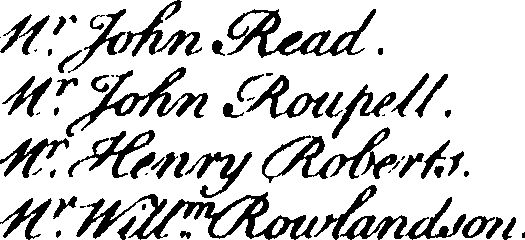 Mr. John Read.
Mr. John Roupell.
Mr. Henry Roberts.
Mr. Willm. Rowlandson.